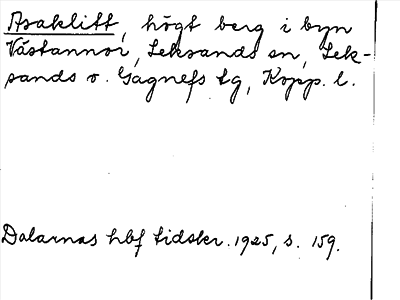 Asaklitt, högt berg i byn
Västannor, Leksands sn, Lek-
sands o. Gagnefs tg, Kopp. l.
Dalarnas hbf tidskr. 1925, s. 159.